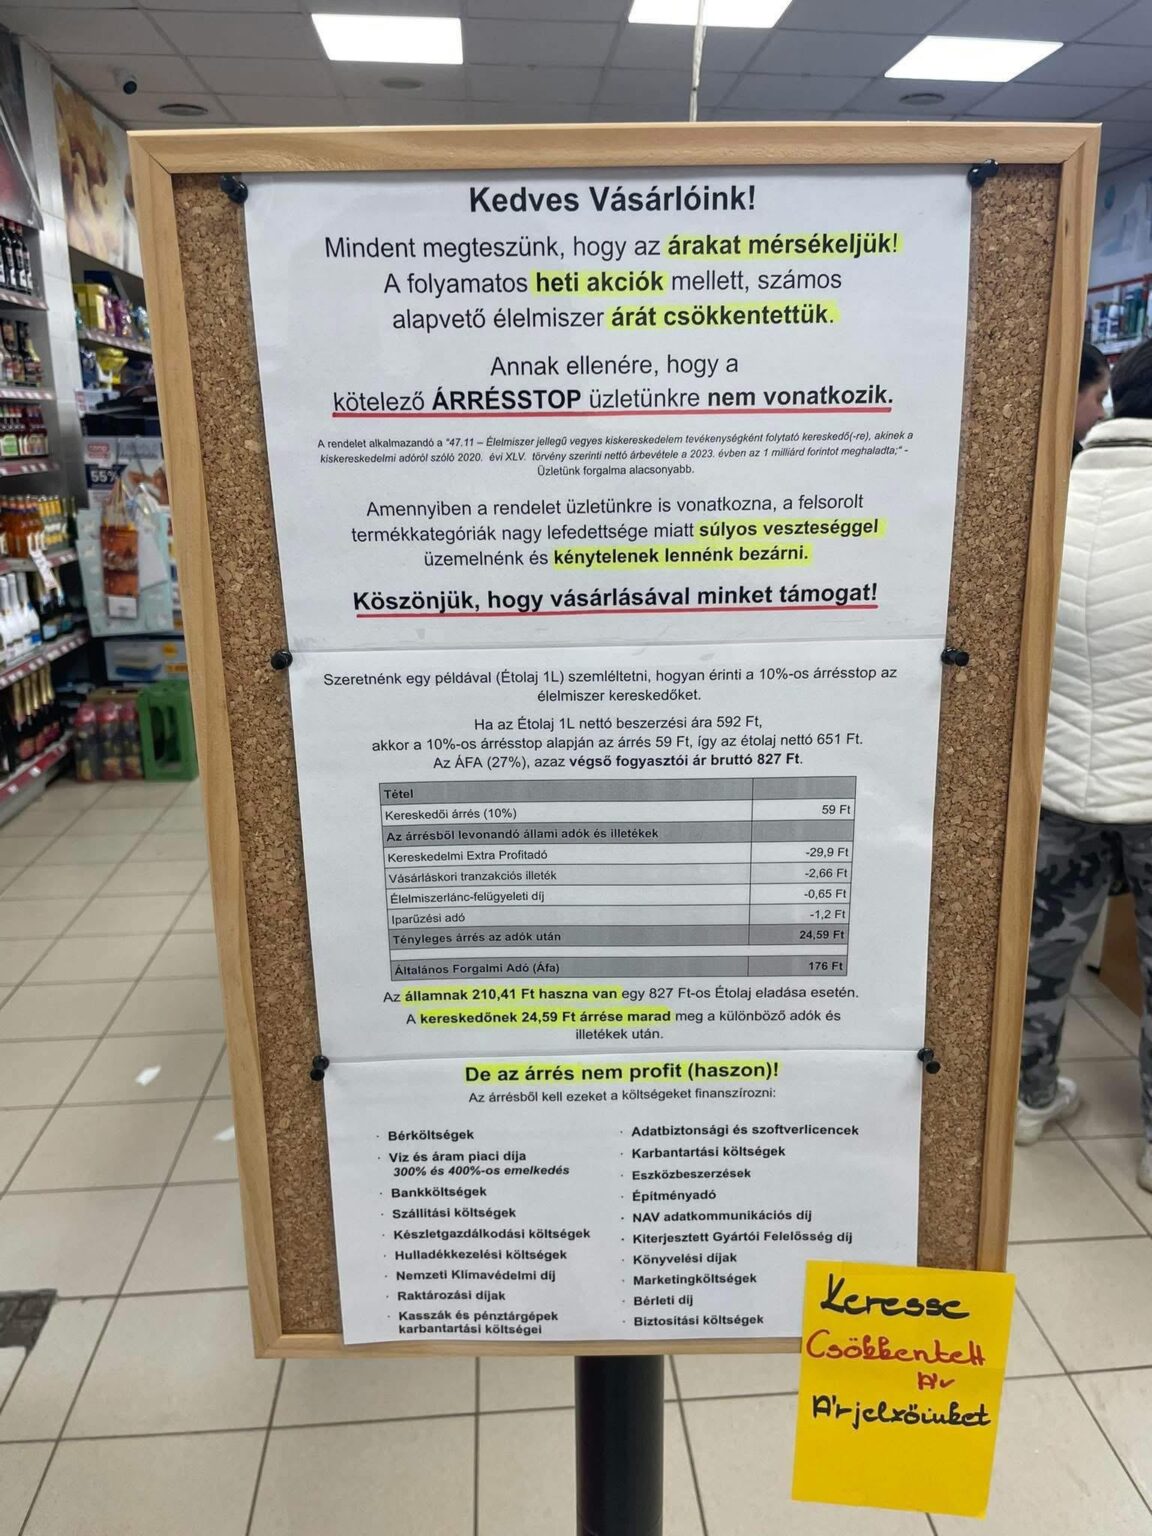 Kedves Vásárlóink!
Mindent megteszünk, hogy az árakat mérsékeljük!
A folyamatos heti akciók mellett, számos
alapvető élelmiszer árát csökkentettük.
Annak ellenére, hogy a
kötelező ÁRRÉSSTOP üzletünkre nem vonatkozik.
A rendelet alkalmazandó a "47.11 – Élelmiszer jellegű vegyes kiskereskedelem tevékenységként folytató kereskedő(-re), akinek a
kiskereskedelmi adóról szóló 2020. évi XLV. törvény szerinti nettó árbevétele a 2023. évben az 1 milliárd forintot meghaladta;" -
Üzletünk forgalma alacsonyabb.
Amennyiben a rendelet üzletünkre is vonatkozna, a felsorolt
termékkategóriák nagy lefedettsége miatt súlyos veszteséggel
üzemelnénk és kénytelenek lennénk bezárni.
Köszönjük, hogy vásárlásával minket támogat!
Szeretnénk egy példával (Étolaj 1L) szemléltetni, hogyan érinti a 10%-os árrésstop az
élelmiszer kereskedőket.
Ha az Étolaj 1L nettó beszerzési ára 592 Ft,
akkor a 10%-os árrésstop alapján az árrés 59 Ft, így az étolaj nettó 651 Ft.
Az ÁFA (27%), azaz végső fogyasztói ár bruttó 827 Ft.
Tétel
Kereskedői árrés (10%) 59 Ft
Az árrésből levonandó állami adók és illetékek
Kereskedelmi Extra Profitadó -29,9 Ft
Vásárláskori tranzakciós illeték -2,66 Ft
Élelmiszerlánc-felügyeleti díj -0,65 Ft
Iparűzési adó -1,2 Ft
Tényleges árrés az adók után 24,59 Ft
Általános Forgalmi Adó (Áfa) 176 Ft
Az államnak 210,41 Ft haszna van egy 827 Ft-os Étolaj eladása esetén.
A kereskedőnek 24,59 Ft árrése marad meg a különböző adók és
illetékek után.
De az árrés nem profit (haszon)!
Az árrésből kell ezeket a költségeket finanszírozni:
· Bérköltségek
· Víz és áram piaci díja
300% és 400%-os emelkedés
· Bankköltségek
· Szállítási költségek
· Készletgazdálkodási költségek
· Hulladékkezelési költségek
· Nemzeti Klímavédelmi díj
· Raktározási díjak
· Kasszák és pénztárgépek
karbantartási költségei
· Adatbiztonsági és szoftverlicencek
· Karbantartási költségek
· Eszközbeszerzések
· Építményadó
· NAV adatkommunikációs díj
· Kiterjesztett Gyártói Felelősség díj
· Könyvelési díjak
· Marketingköltségek
· Bérleti díj
· Biztosítási költségek
Keresse
Csökkentett
Ár
Árjelzőinket
55%